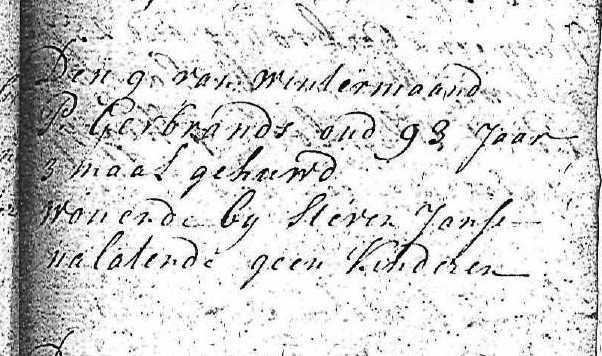 Den 9 van wintermaand
P. Gerbrands oud 93 Jaar
3 maal gehuwd
wonende by Steven Janse
nalatende geen Kinderen